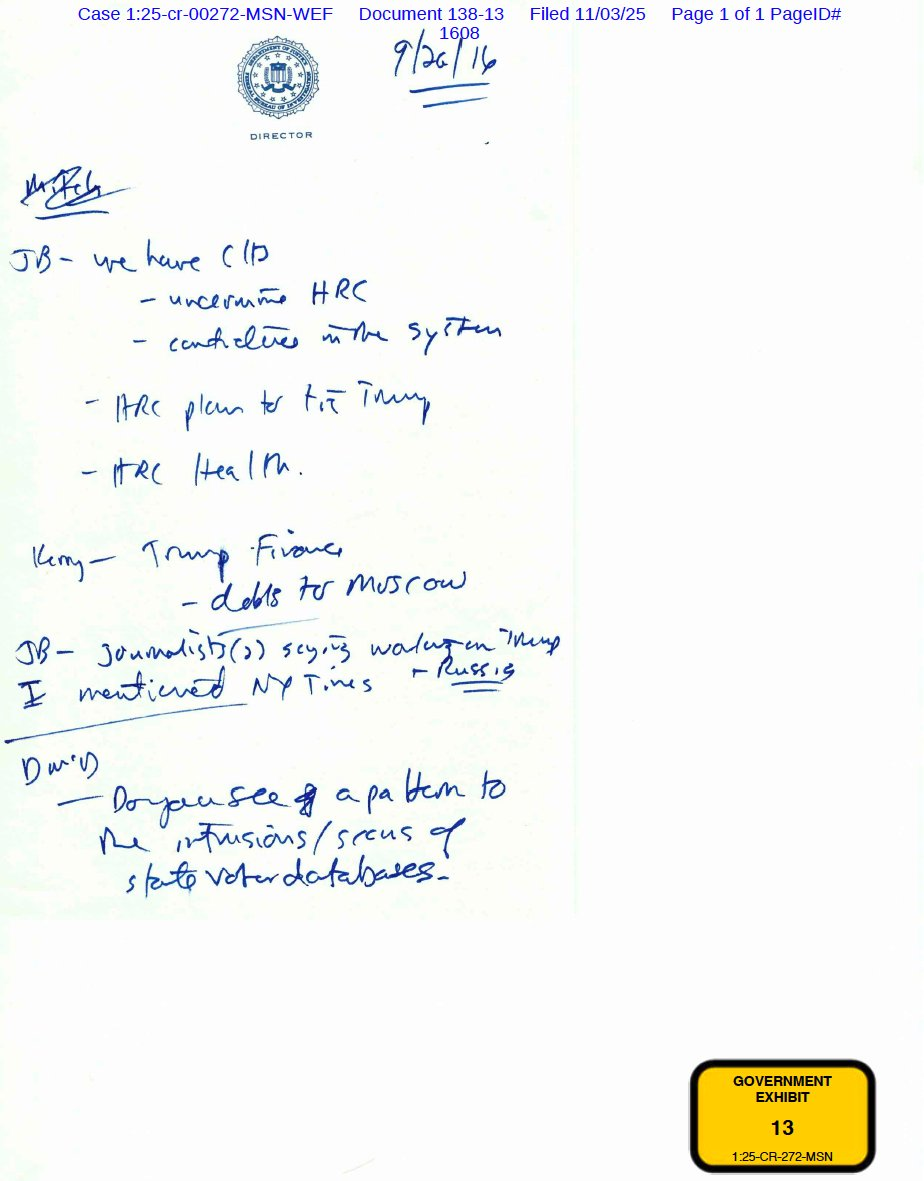 Case 1:25-cr-00272-MSN-WEF Document 138-13 Filed 11/03/25 Page 1 of 1 PageID#
1608
9/26/16
DEPARTMENT OF JUSTICE
FEDERAL BUREAU OF INVESTIGATION
DIRECTOR
JB - we have
- HRC
- candidates in the system
- HRC plan to Trump
- HRC Health.
Kerry - Trump Finance
- debts to Moscow
JB - journalists(s) saying working on Trump
- Russia
I mentioned NY Times
D McD
- Do you see a pattern to
the intrusions/scans of
state voter databases.
GOVERNMENT
EXHIBIT
13
1:25-CR-272-MSN